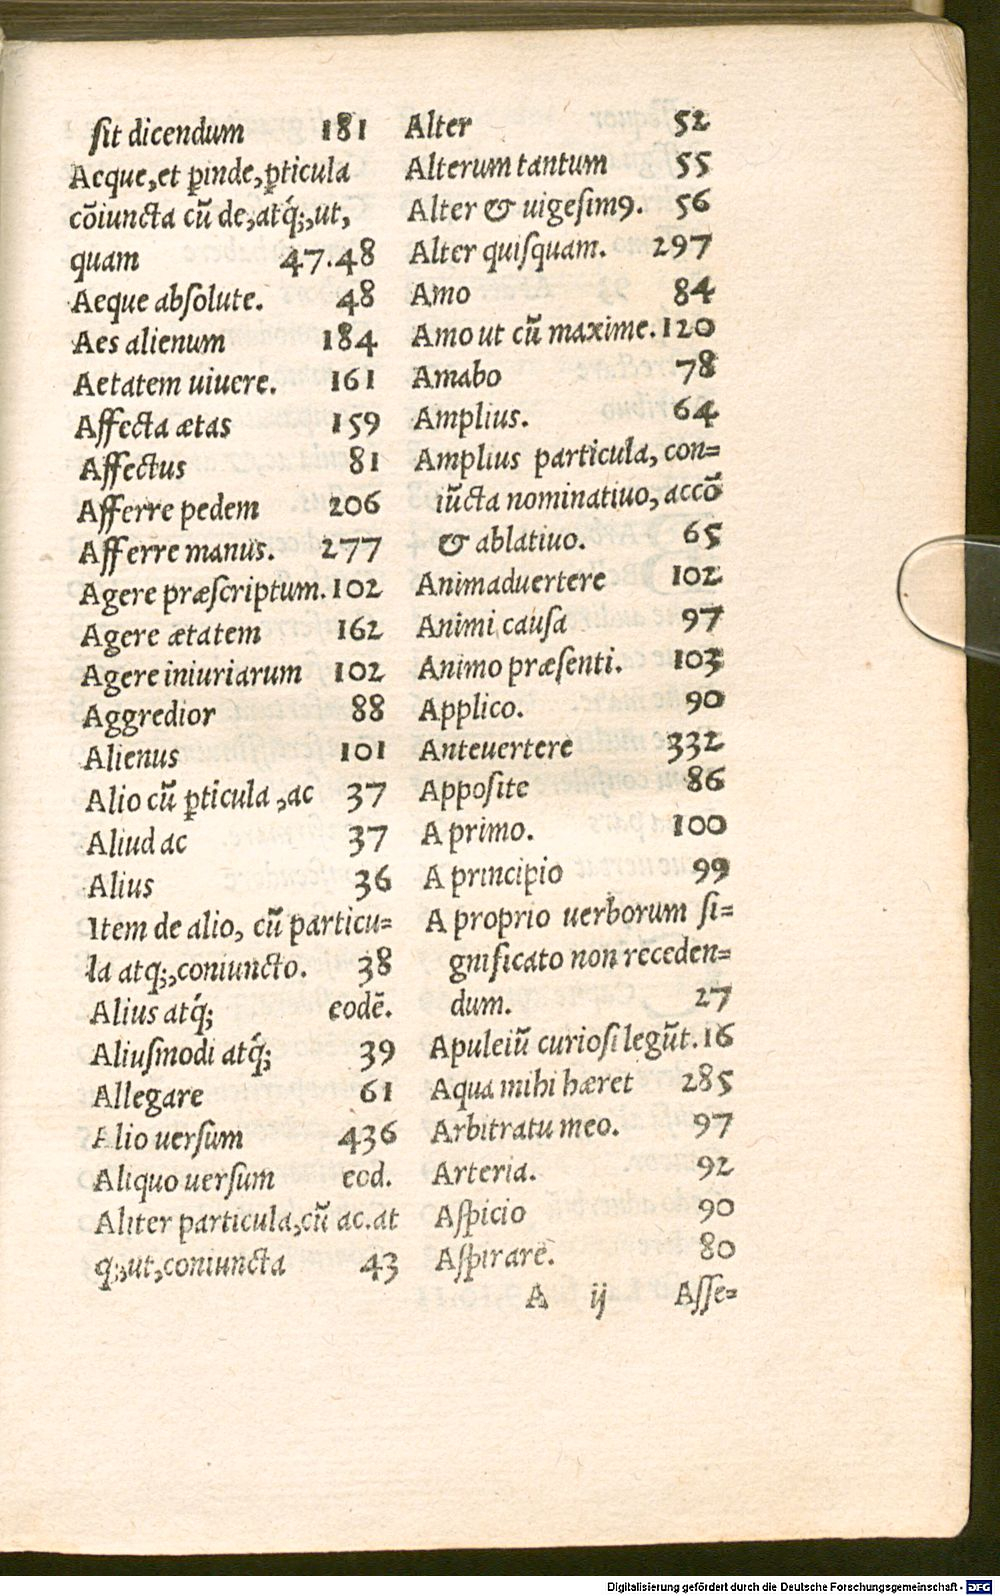 sit dicendum 181
Aeque, et ꝑinde, ꝑticula
cõiuncta cũ de, atq́;, ut,
quam 47.48
Aeque absolute. 48
Aes alienum 184
Aetatem uiuere. 161
Affecta ætas 159
Affectus 81
Afferre pedem 206
Afferre manus. 277
Agere præscriptum. 102
Agere ætatem 162
Agere iniuriarum 102
Aggredior 88
Alienus 101
Alio cũ ꝑticula, ac 37
Aliud ac 37
Alius 36
Item de alio, cũ particu=
la atq;, coniuncto. 38
Alius atq́; eodẽ.
Aliusmodi atq́; 39
Allegare 61
Alio uersum 436
Aliquo uersum eod.
Aliter particula, cũ ac. at
q;, ut, coniuncta 43
Alter 52
Alterum tantum 55
Alter & uigesimꝰ. 56
Alter quisquam. 297
Amo 84
Amo ut cũ maxime. 120
Amabo 78
Amplius. 64
Amplius particula, con=
iũcta nominatiuo, accõ
& ablatiuo. 65
Animaduertere 102
Animi causa 97
Animo præsenti. 103
Applico. 90
Anteuertere 332
Apposite 86
A primo. 100
A principio 99
A proprio uerborum si=
gnificato non receden=
dum. 27
Apuleiũ curiosi legũt. 16
Aqua mihi hæret 285
Arbitratu meo. 97
Arteria. 92
Aspicio 90
Aspirare. 80
A ij Asse=
Digitalisierung gefördert durch die Deutsche Forschungsgemeinschaft - DFG